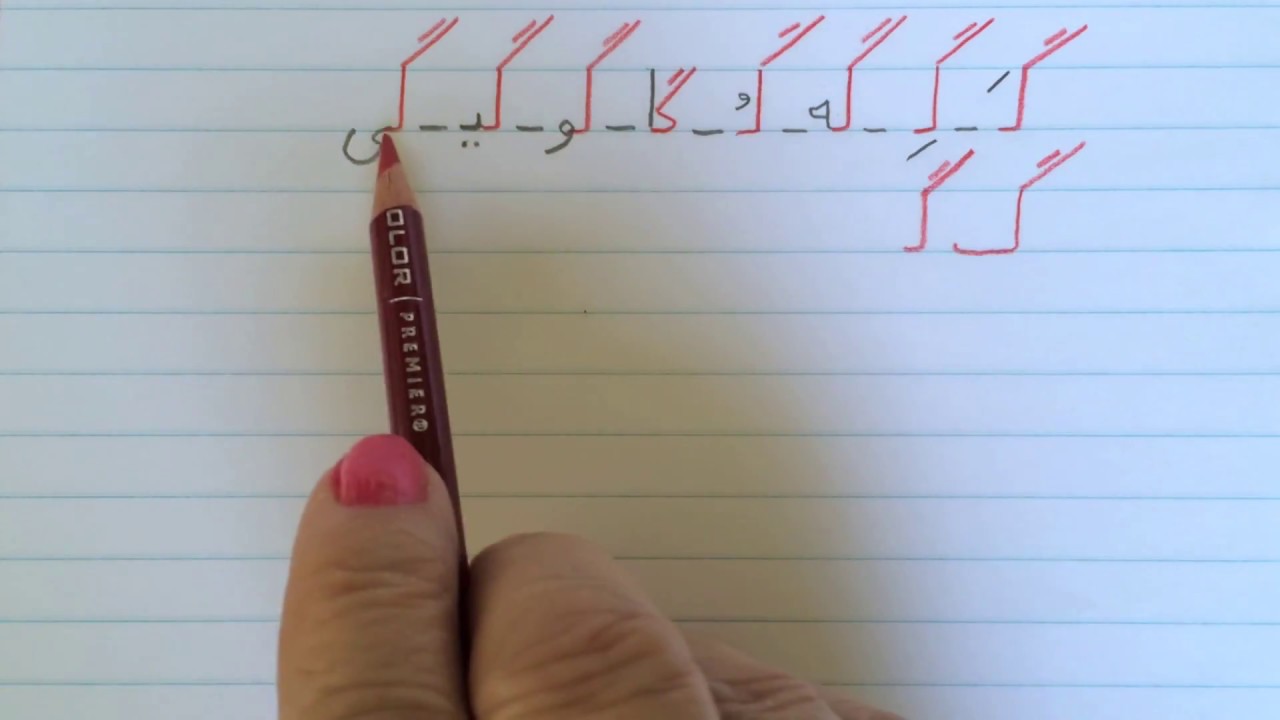 گَ - گِ - گه - گُ - گا - گو - گیـ - گی
گ گـ
OLOR | PREMIER®